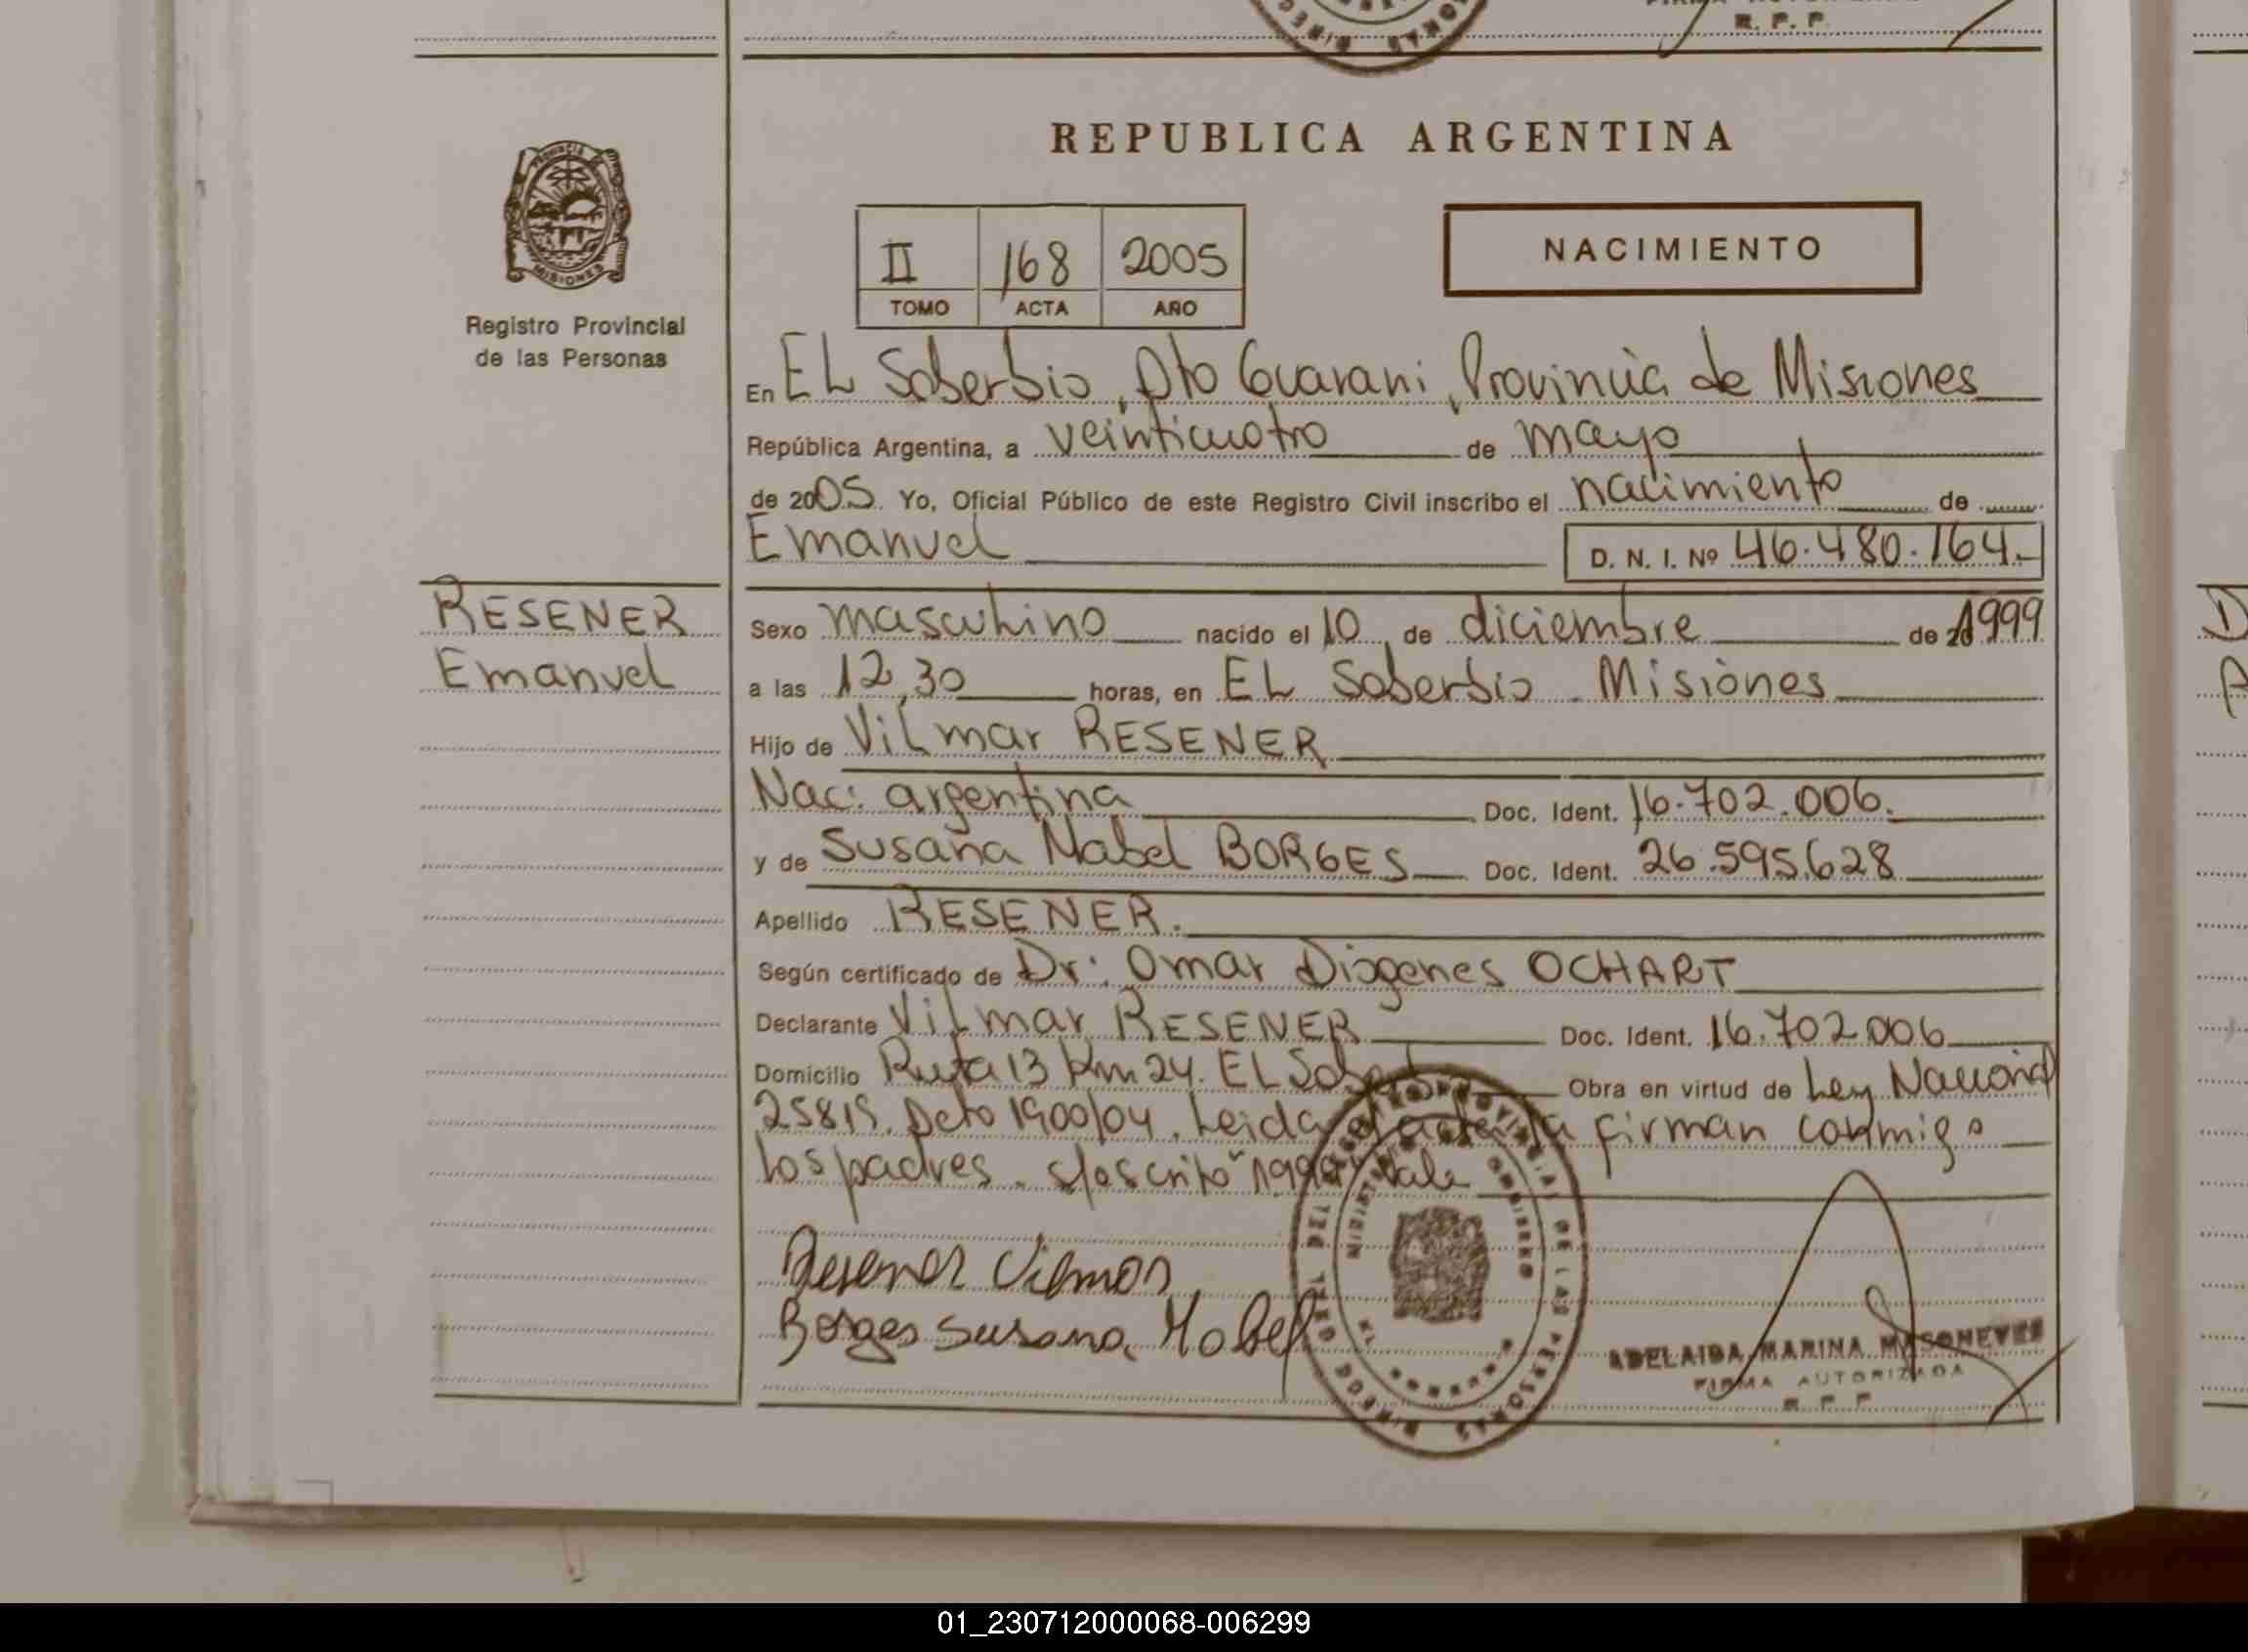 R. P. P.
REPUBLICA ARGENTINA
PROVINCIA DE
MISIONES
Registro Provincial
de las Personas
II 168 2005
TOMO ACTA AÑO
NACIMIENTO
En EL Soberbio, Dto Guarani, Provincia de Misiones
República Argentina, a veinticuatro de mayo
de 2005. Yo, Oficial Público de este Registro Civil inscribo el nacimiento de
Emanuel D. N. I. Nº 46.480.164.-
RESENER
Emanuel
Sexo masculino nacido el 10 de diciembre de 1999
a las 12,30 horas, en EL Soberbio - Misiones
Hijo de Vilmar RESENER
Nac: argentina Doc. Ident. 16.702.006.
y de Susana Mabel BORGES Doc. Ident. 26.595.628
Apellido RESENER.
Según certificado de Dr: Omar Diogenes OCHART
Declarante Vilmar RESENER Doc. Ident. 16.702.006
Domicilio Ruta 13 Km 24. EL Soberbio Obra en virtud de Ley Nacional
25819. Dcto 1900/04. Leida el acta la firman conmigo
los padres. s/oscrito "1999" Vale
Resener Vilmar
Borges Susana Mabel
ADELAIDA MARINA
FIRMA AUTORIZADA
R. P. P.
01_230712000068-006299